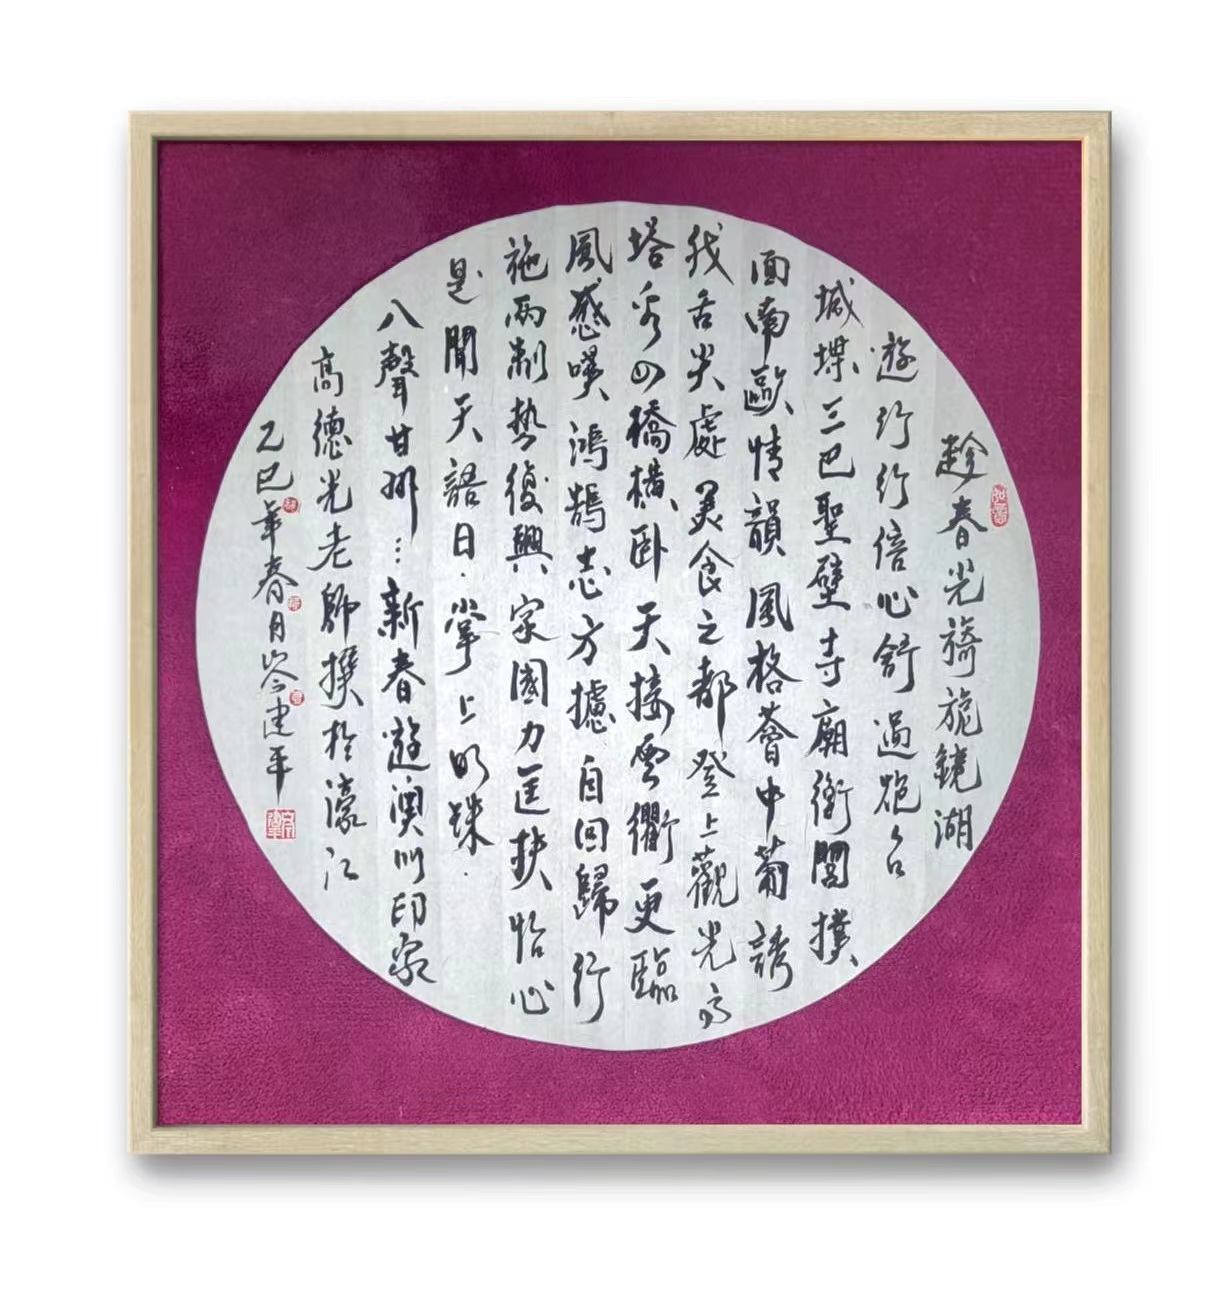 趁春光旖旎鏡湖
遊行行倍心舒過炮台
城堞三巴聖壁寺廟街閭撲
面南歐情韻風格薈中葡誘
我舌尖處美食之都登上觀光高
塔看四橋橫卧天接雲衢更臨
風感嘆鴻鵠志方攄自回歸行
施兩制勢復興家國力匡扶怡心
是聞天語曰·掌上明珠.
八聲甘州…新春遊澳門印象
高德光老師撰於濠江
乙巳年春月岑建平